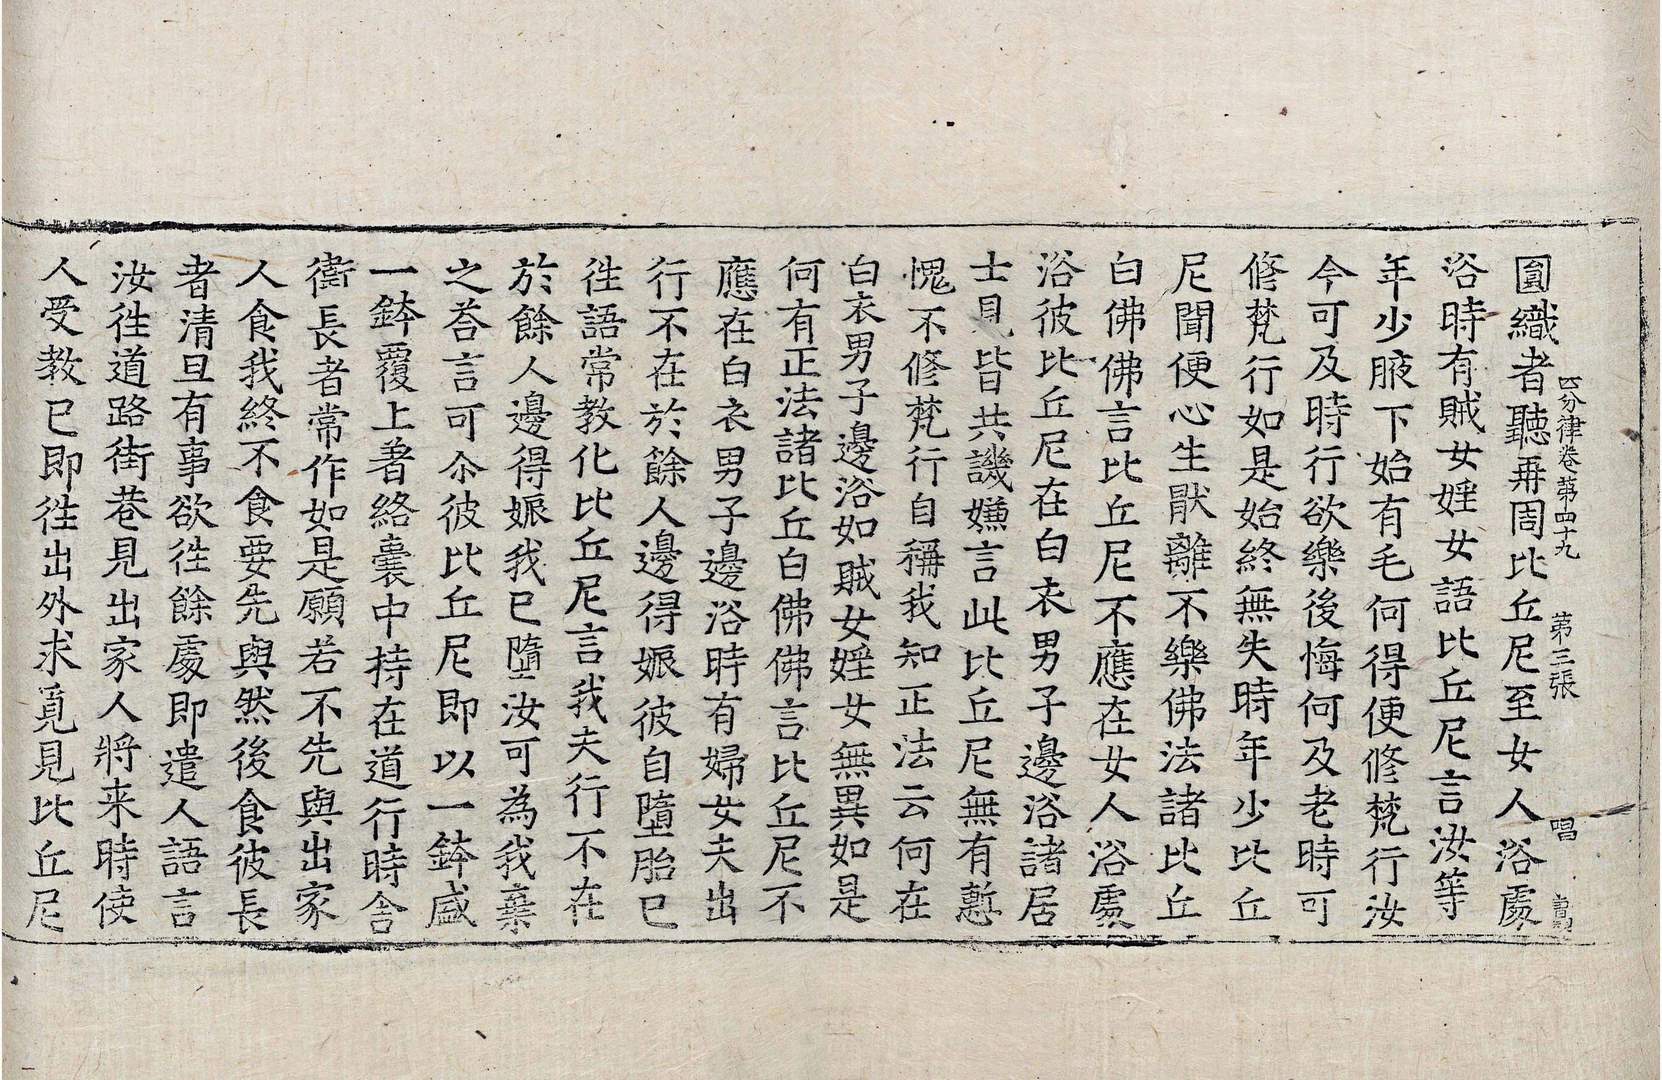 四分律卷第四十九　第三張　唱
圎織者聽再周比丘尼至女人浴處
浴時有賊女婬女語比丘尼言汝等
年少腋下始有毛何得便修梵行汝
今可及時行欲樂後悔何及老時可
修梵行如是始終無失時年少比丘
尼聞便心生猒離不樂佛法諸比丘
白佛佛言比丘尼不應在女人浴處
浴彼比丘尼在白衣男子邊浴諸居
士見皆共譏嫌言此比丘尼無有慙
愧不修梵行自稱我知正法云何在
白衣男子邊浴如賊女婬女無異如是
何有正法諸比丘白佛佛言比丘尼不
應在白衣男子邊浴時有婦女夫出
行不在於餘人邊得娠彼自墮胎已
往語常教化比丘尼言我夫行不在
於餘人邊得娠我已墮汝可為我棄
之荅言可尒彼比丘尼即以一鉢盛
一鉢覆上著絡囊中持在道行時舍
衛長者常作如是願若不先與出家
人食我終不食要先與然後食彼長
者清旦有事欲往餘處即遣人語言
汝往道路街巷見出家人將来時使
人受教已即往出外求覓見比丘尼